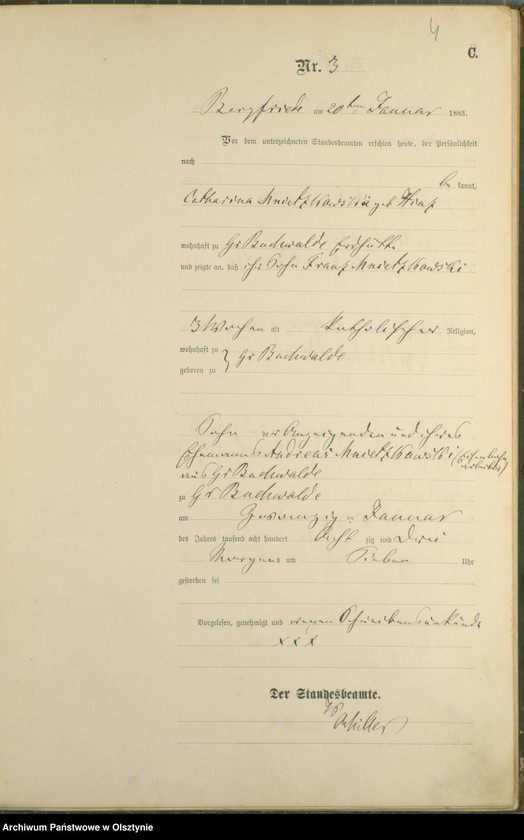 4
C.
Nr. 3
Bergfriede am 20ten Januar 1883.
Vor dem unterzeichneten Standesbeamten erschien heute, der Persönlichkeit
nach
be kannt,
Catharina Mnietzkowski geb Hinz
wohnhaft zu Gr Buchwalde
und zeigte an, daß ihr Sohn Franz Mnietzkowski
3 Wochen alt Katholischer Religion,
wohnhaft zu } Gr Buchwalde
geboren zu
Sohn der Anzeigenden und ihres
Ehemanns Andreas Mnietzkowski (Eisenbahn
arbeiter)
aus Gr Buchwalde
zu Gr Buchwalde
am Zwanzig ten Januar
des Jahres tausend acht hundert Acht zig und Drei
Morgens um Sieben Uhr
gestorben sei
Vorgelesen, genehmigt und wegen Schreibensunkunde
x x x
Der Standesbeamte.
Archiwum Państwowe w Olsztynie